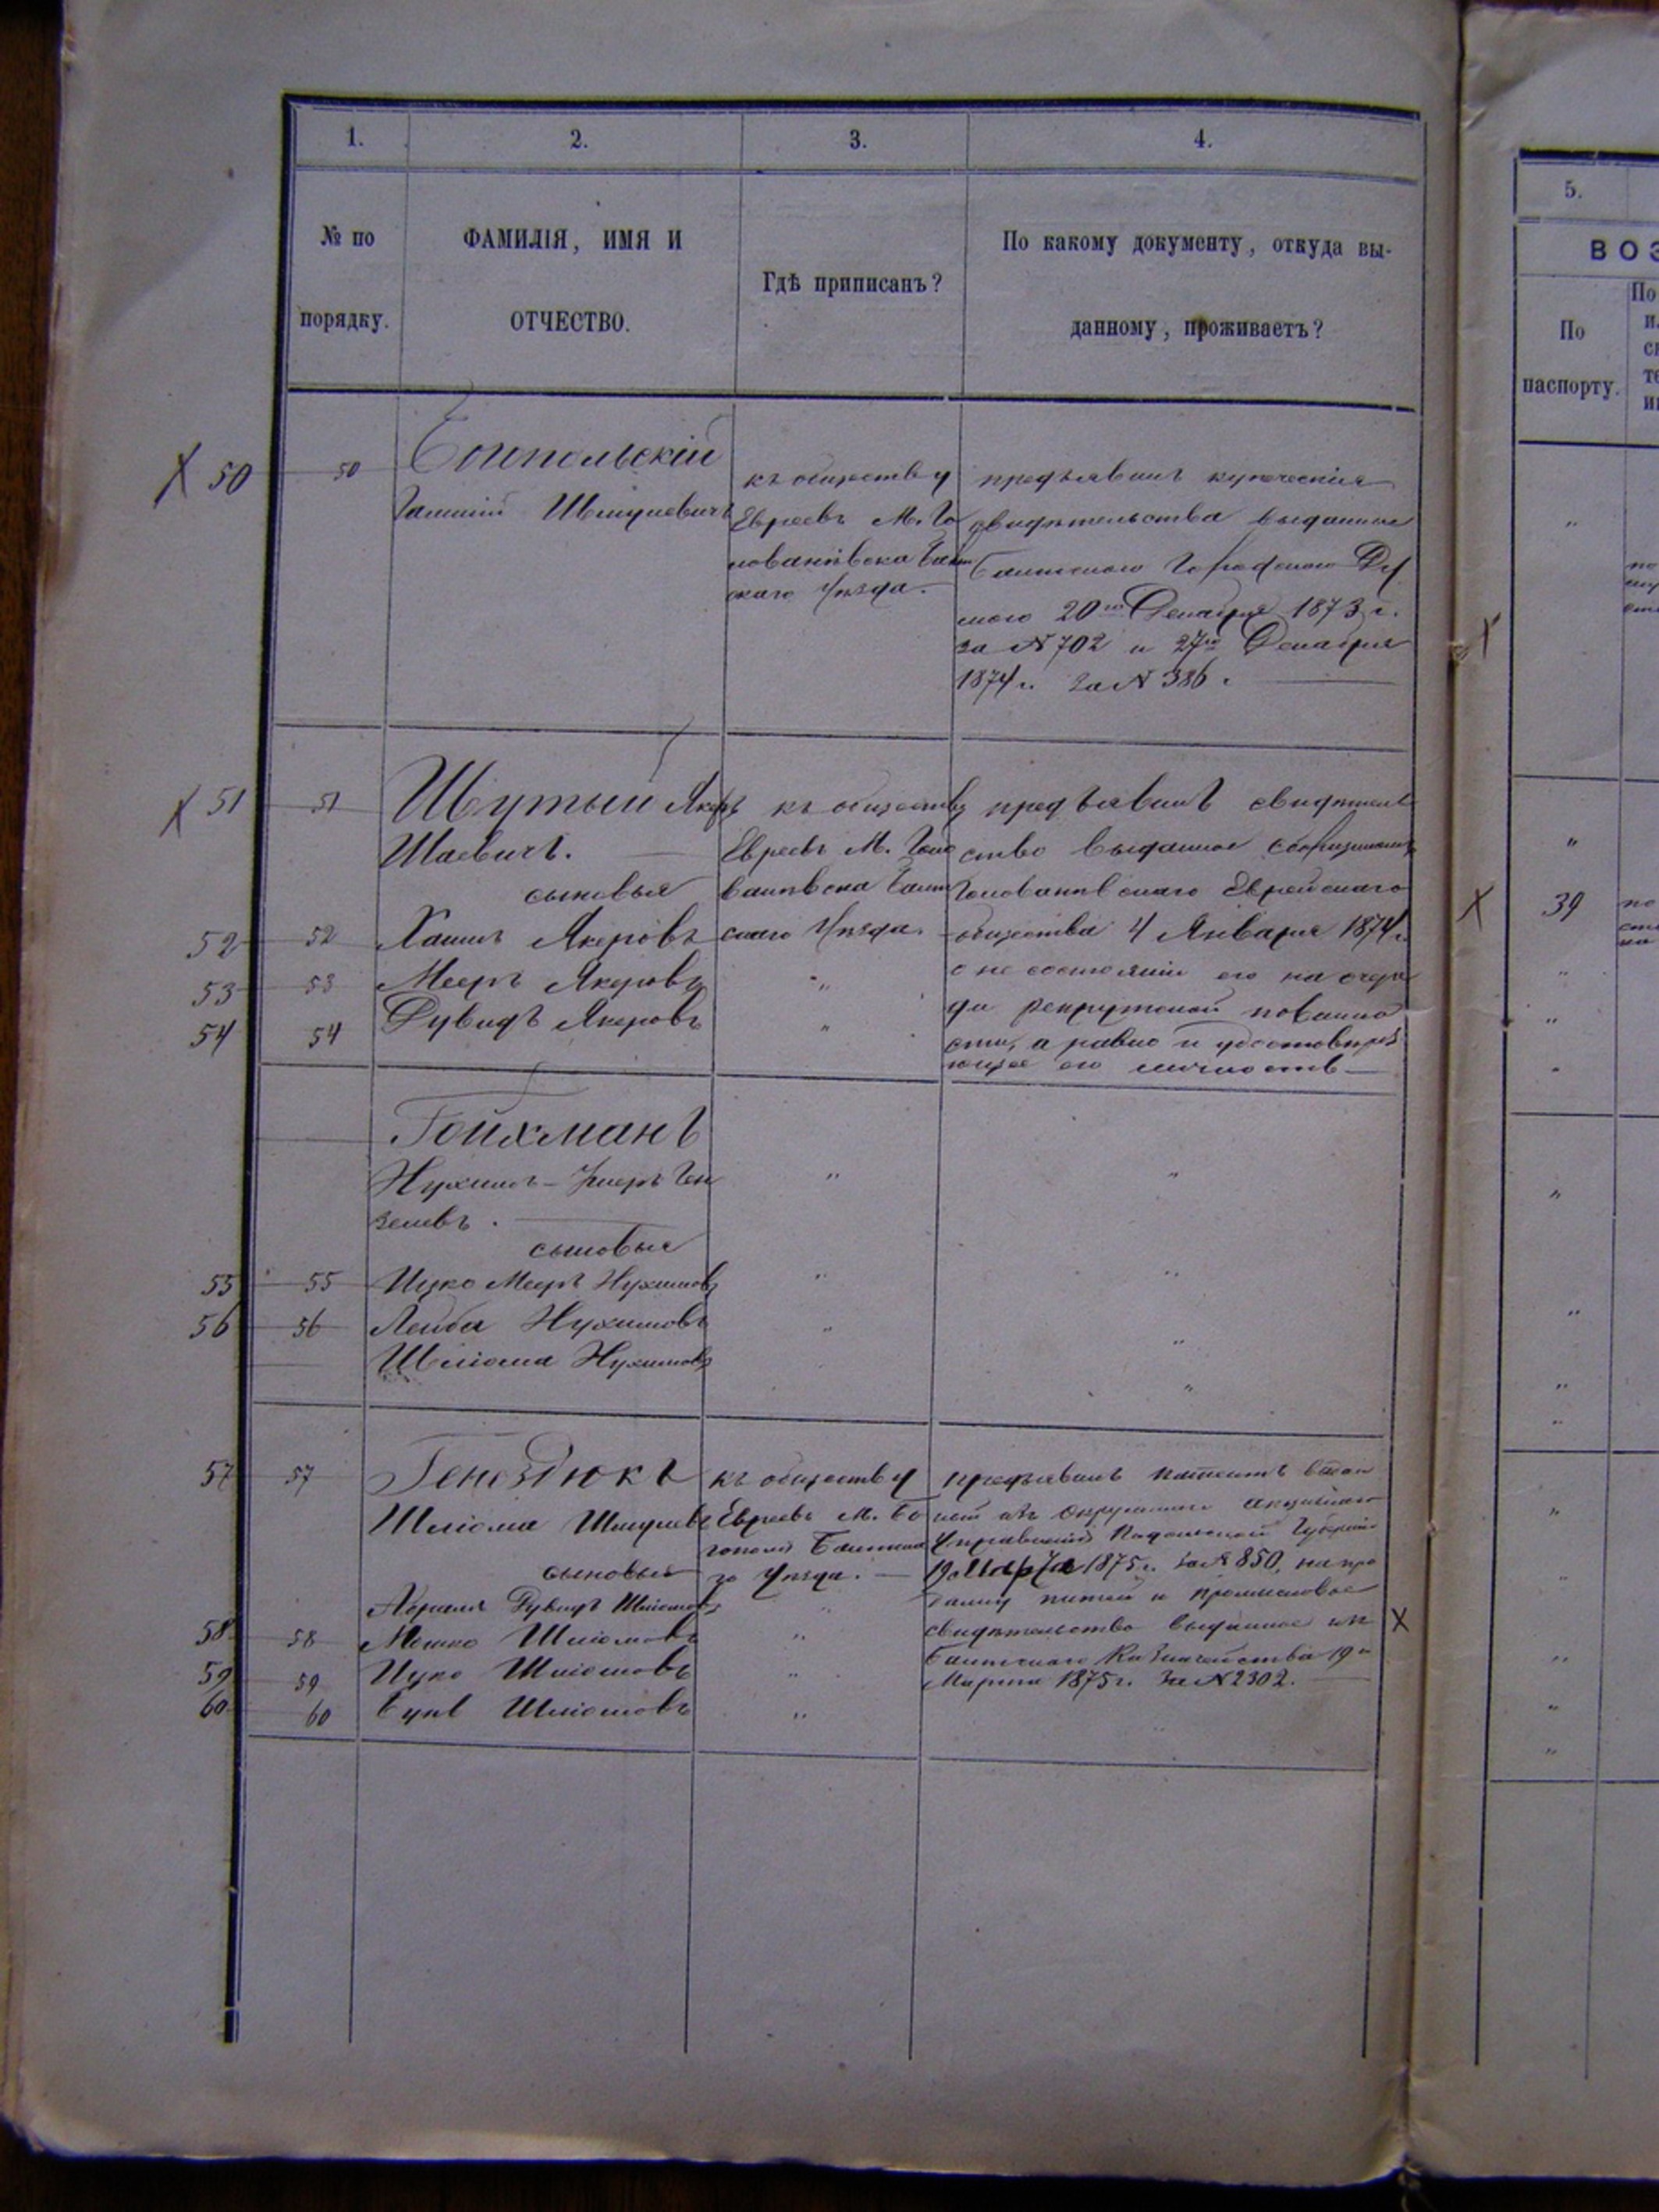 1.
2.
3.
4.
№ по порядку.
ФАМИЛІЯ, ИМЯ И ОТЧЕСТВО.
Гдѣ приписанъ?
По какому документу, откуда вы-
данному, проживаетъ?
50
50
Шмулевичъ
къ обществу
Евреевъ М. Го
уѣзда.
предъявилъ купеческія
свидѣтельства выданные
Балтскаго Городскою Ду
мою 20го Декабря 1873 г.
за № 702 и 27го Декабря
1874 г. за № 386.
51
51
Шутый Якеръ
Шаевичъ.
сыновья
къ обществу
Евреевъ М. Голо
скаго уѣзда.
предъявилъ свидѣтель
ство выданное
Еврейскаго
общества 4 Января 1874 г.
о не состояніи его на очере
ди рекрутской повинно
сти, а равно и удостовѣря
ющее его личность
52
52
Хаимъ Якеровъ
53
53
Мееръ Якеровъ
"
54
54
Дувидъ Якеровъ
"
Гойхманъ
Нухимъ-
зелевъ.
"
"
сыновья
55
55
Ицко Мееръ Нухимовъ
"
"
56
56
Лейба Нухимовъ
"
"
Шліома Нухимовъ
"
57
57
Шліома Шмулевъ
сыновья
къ обществу
Евреевъ М. Бо
гополя Балтска
го уѣзда.
предъявилъ патентъ
изъ Окружнаго акцизнаго
Управленія Подольской Губерніи
19 Марта 1875 г. за № 850, на про
дажу питей и промысловое
свидѣтельство выданное изъ
Балтскаго Казначейства 19го
Марта 1875 г. За № 2302.
Абрамъ Дувидъ Шліомовъ
"
58
58
Мошко Шліомовъ
"
59
59
Ицко Шліомовъ
"
60
60
Шліомовъ
"
5.
ВОЗ
По
паспорту.
По
"
"
39
"
"
"
"
"
"
"
"
"
"
"
"